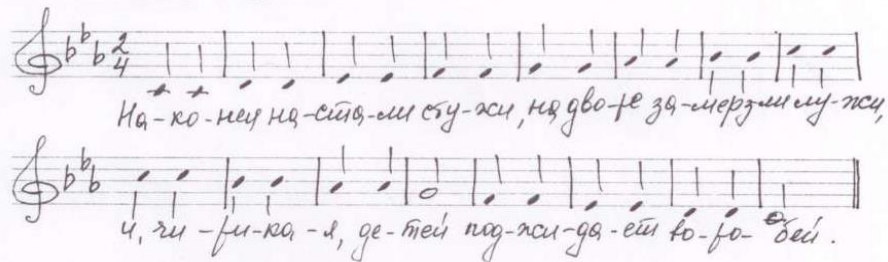 2
4
На-ко-нец на-ста-ли сту-жи, на дво-ре за-мерз-ли лу-жи,
и, чи-ри-ка-я, де-тей под-жи-да-ет во-ро-бей.